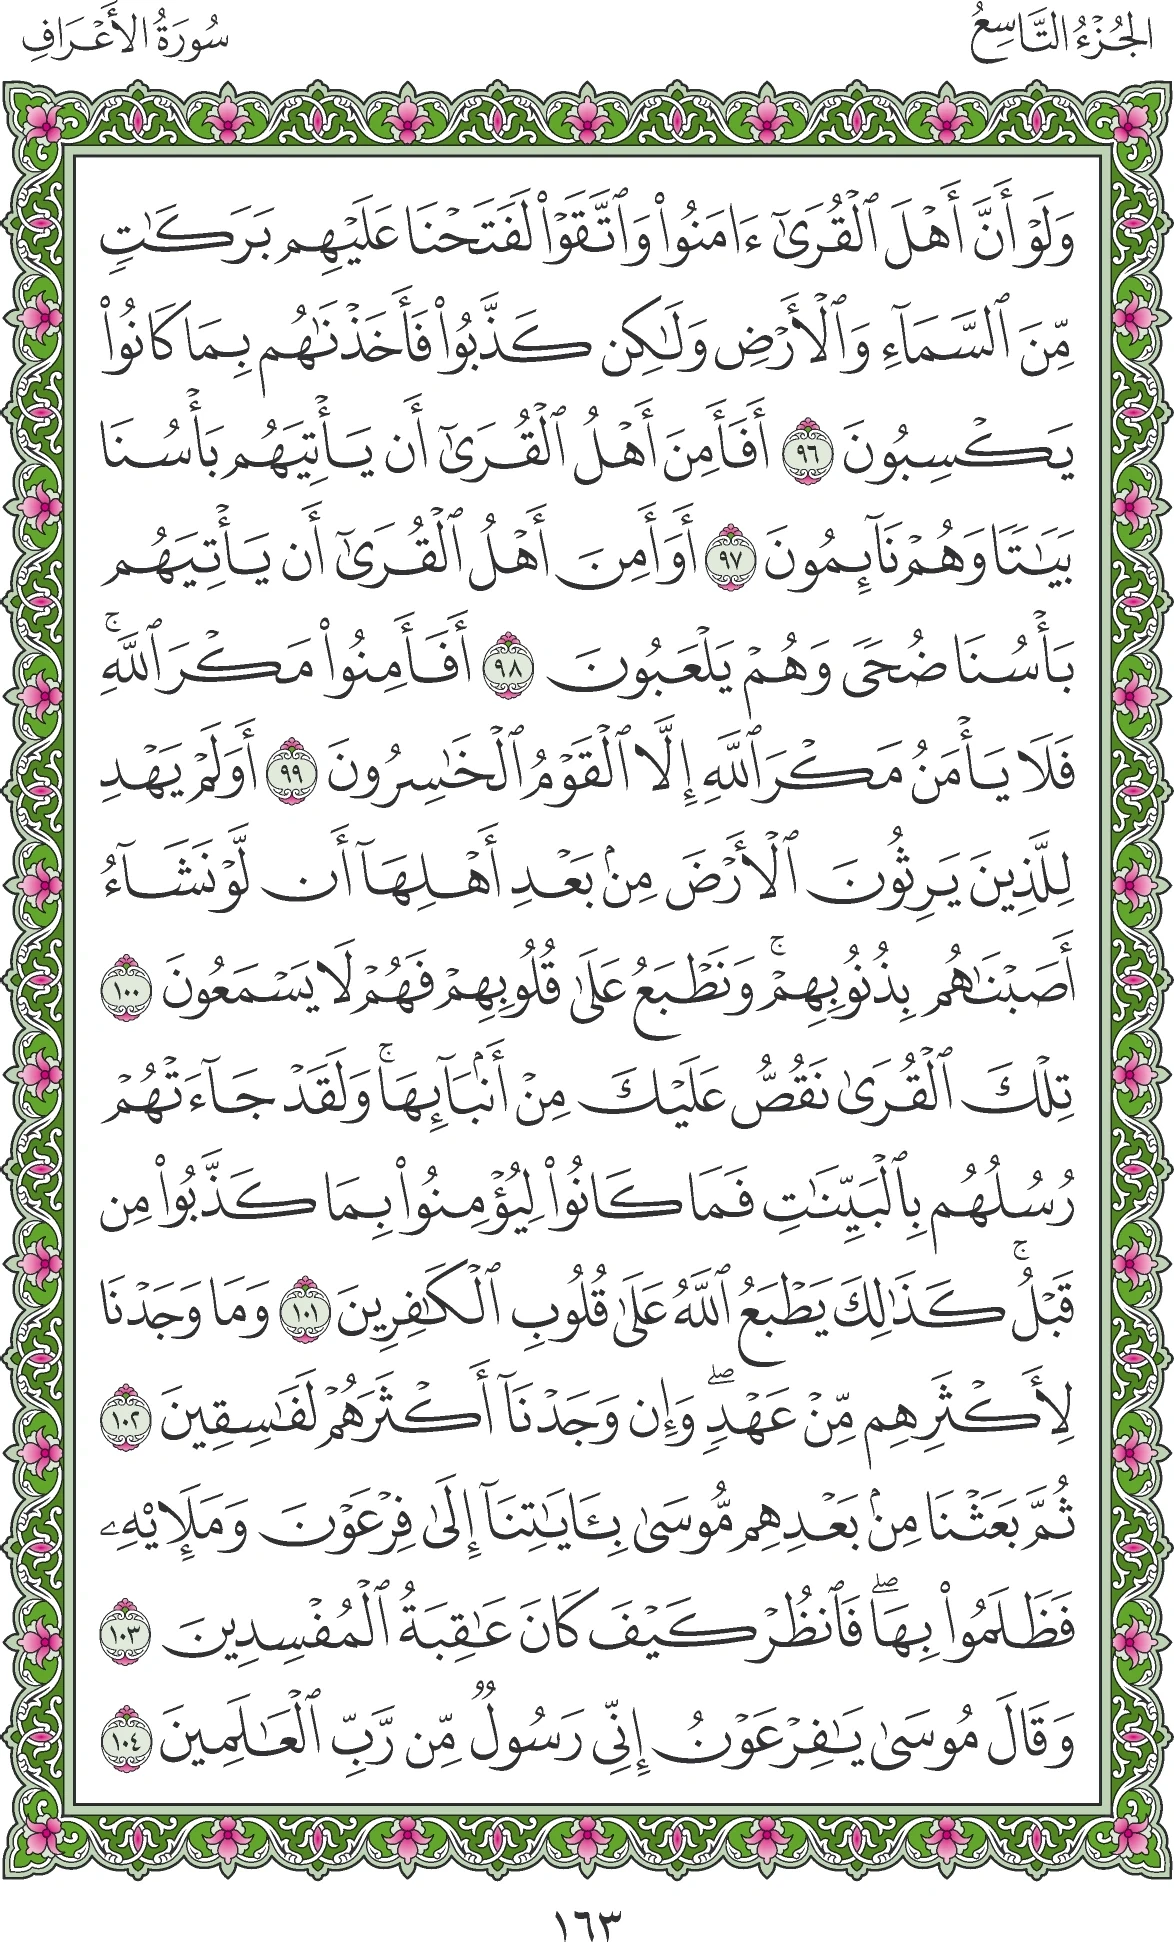 الجُزْءُ التَّاسِعُ
سُورَةُ الأَعْرَافِ
وَلَوْ أَنَّ أَهْلَ ٱلْقُرَىٰٓ ءَامَنُوا۟ وَٱتَّقَوْا۟ لَفَتَحْنَا عَلَيْهِم بَرَكَـٰتٍ
مِّنَ ٱلسَّمَآءِ وَٱلْأَرْضِ وَلَـٰكِن كَذَّبُوا۟ فَأَخَذْنَـٰهُم بِمَا كَانُوا۟
يَكْسِبُونَ ٩٦ أَفَأَمِنَ أَهْلُ ٱلْقُرَىٰٓ أَن يَأْتِيَهُم بَأْسُنَا
بَيَـٰتًا وَهُمْ نَآئِمُونَ ٩٧ أَوَأَمِنَ أَهْلُ ٱلْقُرَىٰٓ أَن يَأْتِيَهُم
بَأْسُنَا ضُحًى وَهُمْ يَلْعَبُونَ ٩٨ أَفَأَمِنُوا۟ مَكْرَ ٱللَّهِ ۚ
فَلَا يَأْمَنُ مَكْرَ ٱللَّهِ إِلَّا ٱلْقَوْمُ ٱلْخَـٰسِرُونَ ٩٩ أَوَلَمْ يَهْدِ
لِلَّذِينَ يَرِثُونَ ٱلْأَرْضَ مِنۢ بَعْدِ أَهْلِهَآ أَن لَّوْ نَشَآءُ
أَصَبْنَـٰهُم بِذُنُوبِهِمْ ۚ وَنَطْبَعُ عَلَىٰ قُلُوبِهِمْ فَهُمْ لَا يَسْمَعُونَ ١٠٠
تِلْكَ ٱلْقُرَىٰ نَقُصُّ عَلَيْكَ مِنْ أَنۢبَآئِهَا ۚ وَلَقَدْ جَآءَتْهُمْ
رُسُلُهُم بِٱلْبَيِّنَـٰتِ فَمَا كَانُوا۟ لِيُؤْمِنُوا۟ بِمَا كَذَّبُوا۟ مِن
قَبْلُ ۚ كَذَٰلِكَ يَطْبَعُ ٱللَّهُ عَلَىٰ قُلُوبِ ٱلْكَـٰفِرِينَ ١٠١ وَمَا وَجَدْنَا
لِأَكْثَرِهِم مِّنْ عَهْدٍ ۖ وَإِن وَجَدْنَآ أَكْثَرَهُمْ لَفَـٰسِقِينَ ١٠٢
ثُمَّ بَعَثْنَا مِنۢ بَعْدِهِم مُّوسَىٰ بِـَٔايَـٰتِنَآ إِلَىٰ فِرْعَوْنَ وَمَلَإِي۟هِۦ
فَظَلَمُوا۟ بِهَا ۖ فَٱنظُرْ كَيْفَ كَانَ عَـٰقِبَةُ ٱلْمُفْسِدِينَ ١٠٣
وَقَالَ مُوسَىٰ يَـٰفِرْعَوْنُ إِنِّى رَسُولٌ مِّن رَّبِّ ٱلْعَـٰلَمِينَ ١٠٤
١٦٣